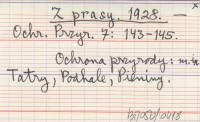 Z prasy. 1928. —
Ochr. Przyr. 7: 143-145.
Ochrona przyrody: m. in.
Tatry, Podhale, Pieniny.